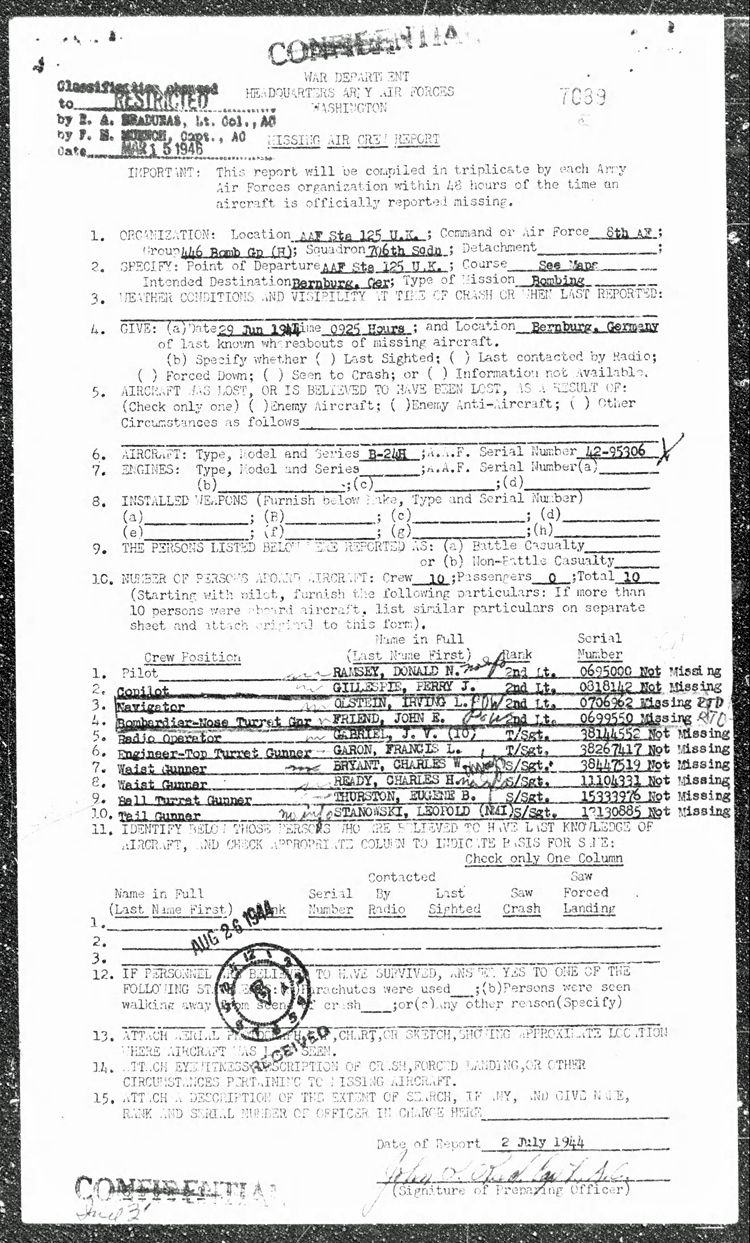 CONFIDENTIAL
WAR DEPARTMENT
HEADQUARTERS ARMY AIR FORCES
WASHINGTON
7039
Classification changed
to RESTRICTED
by E. A. BRADUNAS, Lt. Col., AC
by F. M. MUENCH, Capt., AC
Date MAR 15 1946
MISSING AIR CREW REPORT
IMPORTANT: This report will be compiled in triplicate by each Army
Air Forces organization within 48 hours of the time an
aircraft is officially reported missing.
1. ORGANIZATION: Location AAF Sta 125 U.K.; Command or Air Force 8th AF;
Group 446 Bomb Gp (H); Squadron 706th Sqdn; Detachment ;
2. SPECIFY: Point of Departure AAF Sta 125 U.K.; Course See Maps
Intended Destination Bernburg, Ger; Type of Mission Bombing
3. WEATHER CONDITIONS AND VISIBILITY AT TIME OF CRASH OR WHEN LAST REPORTED:
4. GIVE: (a) Date 29 Jun 1944 Time 0925 Hours; and Location Bernburg, Germany
of last known whereabouts of missing aircraft.
(b) Specify whether ( ) Last Sighted; ( ) Last contacted by Radio;
( ) Forced Down; ( ) Seen to Crash; or ( ) Information not Available.
5. AIRCRAFT WAS LOST, OR IS BELIEVED TO HAVE BEEN LOST, AS A RESULT OF:
(Check only one) ( )Enemy Aircraft; ( )Enemy Anti-Aircraft; ( ) Other
Circumstances as follows
6. AIRCRAFT: Type, Model and Series B-24H ;A.A.F. Serial Number 42-95306
7. ENGINES: Type, Model and Series ;A.A.F. Serial Number(a)
(b) ;(c) ;(d)
8. INSTALLED WEAPONS (Furnish below Make, Type and Serial Number)
(a) ; (B) ; (c) ; (d)
(e) ; (f) ; (g) ;(h)
9. THE PERSONS LISTED BELOW WERE REPORTED AS: (a) Battle Casualty
or (b) Non-Battle Casualty
10. NUMBER OF PERSONS ABOARD AIRCRAFT: Crew 10 ;Passengers 0 ;Total 10
(Starting with pilot, furnish the following particulars: If more than
10 persons were aboard aircraft, list similar particulars on separate
sheet and attach original to this form).
Name in Full Serial
Crew Position (Last Name First) Rank Number
1. Pilot RAMSEY, DONALD N. 2nd Lt. 0695000 Not Missing
2. Copilot GILLESPIE, PERRY J. 2nd Lt. 0818142 Not Missing
3. Navigator OLSTEIN, IRVING L. POW 2nd Lt. 0706962 Missing RTD
4. Bombardier-Nose Turret Gnr FRIEND, JOHN E. POW 2nd Lt. 0699550 Missing RTD
5. Radio Operator GABRIEL, J. V. (IO) T/Sgt. 38144552 Not Missing
6. Engineer-Top Turret Gunner GARON, FRANCIS L. T/Sgt. 38267417 Not Missing
7. Waist Gunner BRYANT, CHARLES W. S/Sgt. 38447519 Not Missing
8. Waist Gunner READY, CHARLES H. S/Sgt. 11104331 Not Missing
9. Ball Turret Gunner THURSTON, EUGENE B. S/Sgt. 15333976 Not Missing
10. Tail Gunner STANOWSKI, LEOPOLD (NMI) S/Sgt. 13130885 Not Missing
11. IDENTIFY BELOW THOSE PERSONS WHO ARE BELIEVED TO HAVE LAST KNOWLEDGE OF
AIRCRAFT, AND CHECK APPROPRIATE COLUMN TO INDICATE BASIS FOR SAME:
Check only One Column
Contacted Saw
Name in Full Serial By Last Saw Forced
(Last Name First) Rank Number Radio Sighted Crash Landing
1.
2.
3.
AUG 26 1944
RECEIVED
12. IF PERSONNEL ARE BELIEVED TO HAVE SURVIVED, ANSWER YES TO ONE OF THE
FOLLOWING STATEMENTS: (a)Parachutes were used ;(b)Persons were seen
walking away from scene of crash ;or(c)any other reason(Specify)
13. ATTACH AERIAL PHOTOGRAPH, MAP,CHART,OR SKETCH,SHOWING APPROXIMATE LOCATION
WHERE AIRCRAFT WAS LAST SEEN.
14. ATTACH EYEWITNESS DESCRIPTION OF CRASH,FORCED LANDING,OR OTHER
CIRCUMSTANCES PERTAINING TO MISSING AIRCRAFT.
15. ATTACH A DESCRIPTION OF THE EXTENT OF SEARCH, IF ANY, AND GIVE NAME,
RANK AND SERIAL NUMBER OF OFFICER IN CHARGE HERE
Date of Report 2 July 1944
(Signature of Preparing Officer)
CONFIDENTIAL